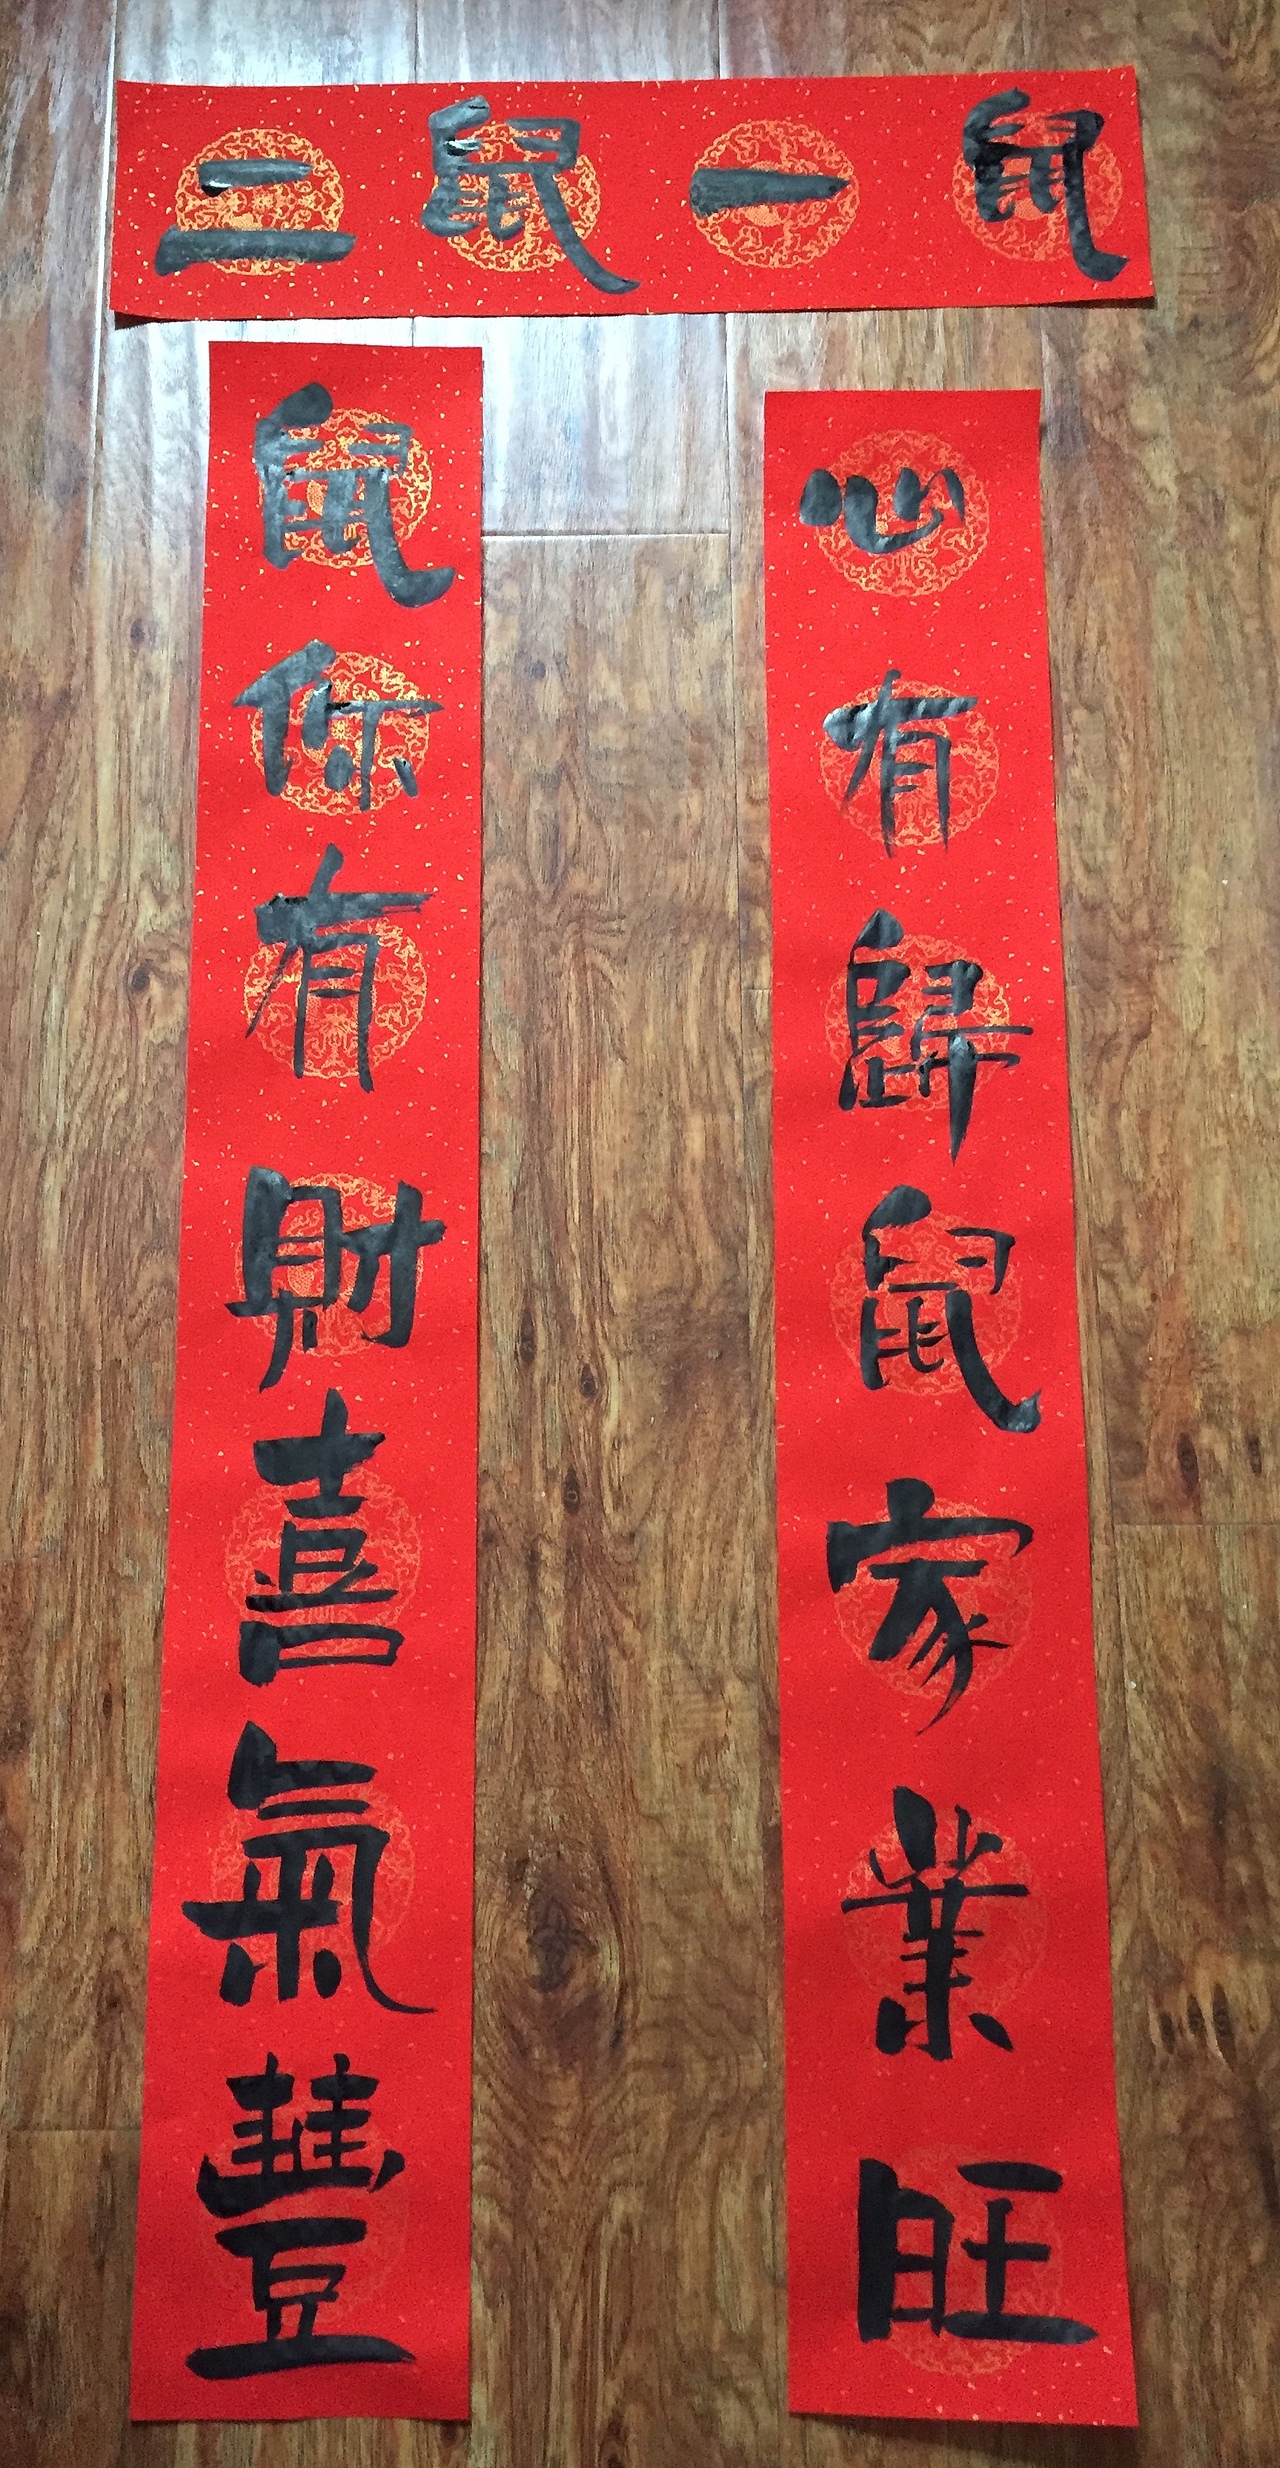 鼠一鼠二
心有歸鼠家業旺
鼠你有財喜氣豐